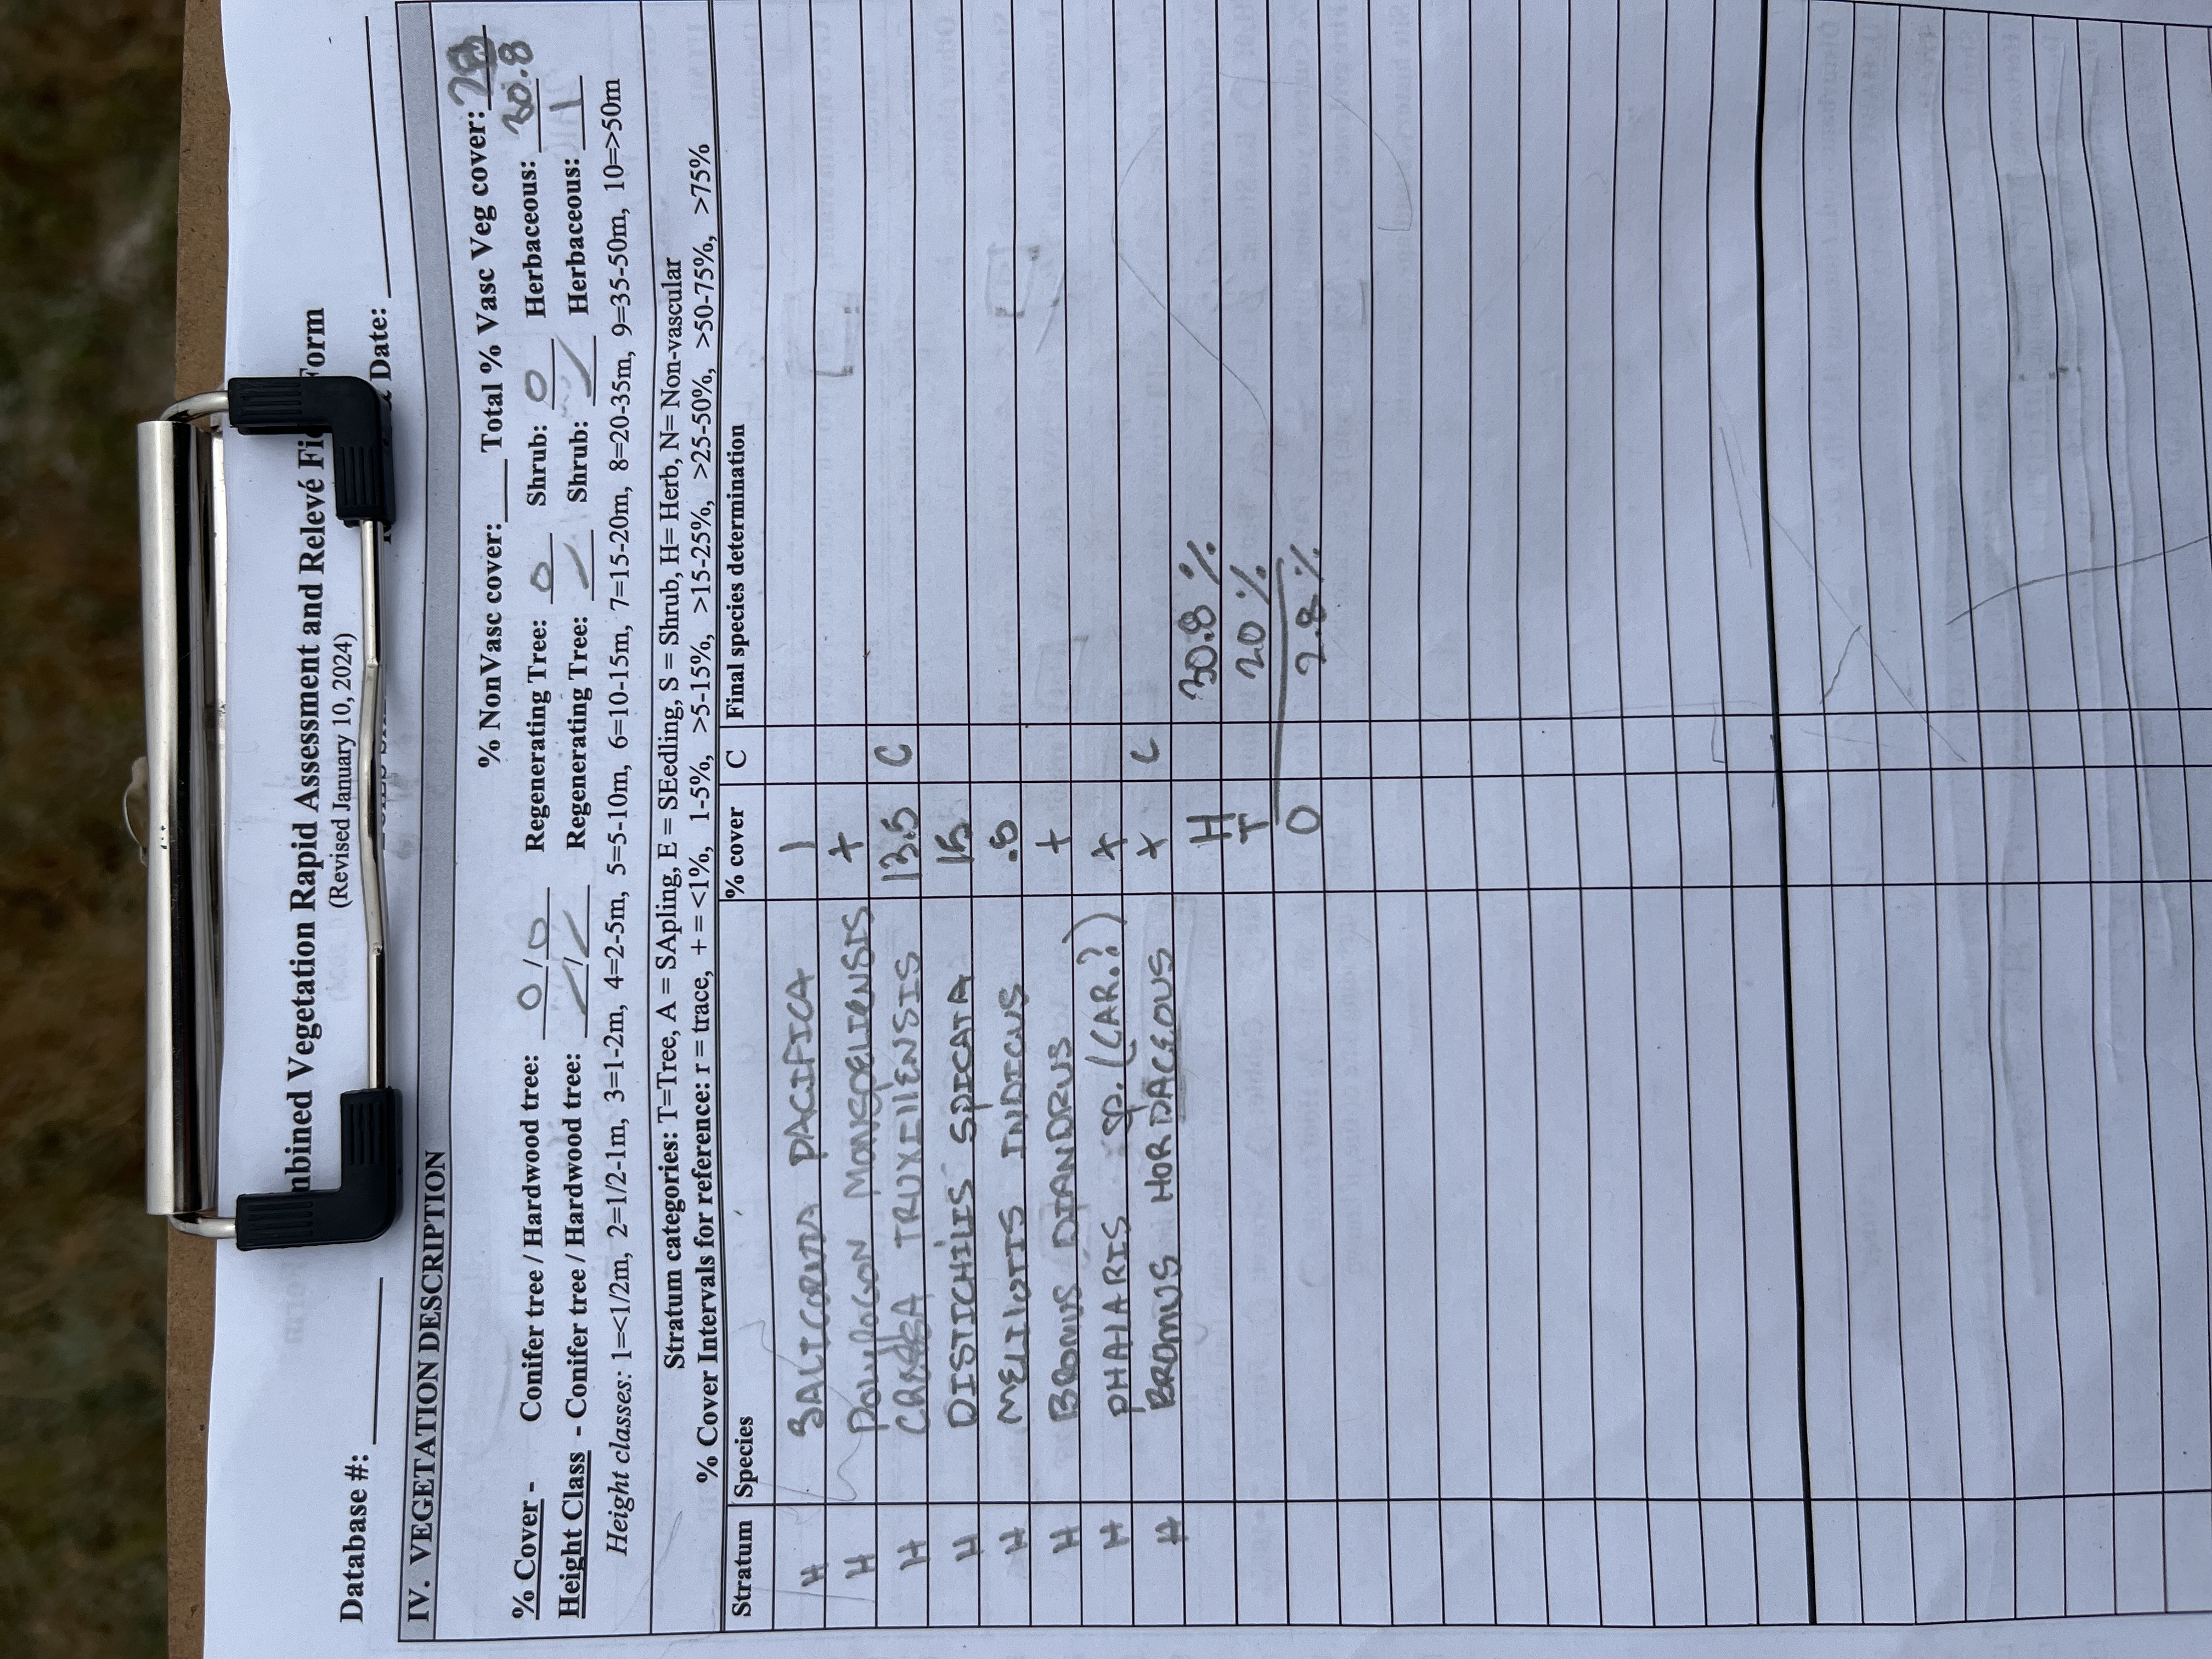 mbined Vegetation Rapid Assessment and Relevé Fi Form
(Revised January 10, 2024)
Database #: Date:
IV. VEGETATION DESCRIPTION
% NonVasc cover: Total % Vasc Veg cover:
% Cover - Conifer tree / Hardwood tree: 0 / 0 Regenerating Tree: 0 Shrub: 0 Herbaceous: 30.8
Height Class - Conifer tree / Hardwood tree: / Regenerating Tree: Shrub: Herbaceous: 1
Height classes: 1=<1/2m, 2=1/2-1m, 3=1-2m, 4=2-5m, 5=5-10m, 6=10-15m, 7=15-20m, 8=20-35m, 9=35-50m, 10=>50m
Stratum categories: T=Tree, A = SApling, E = SEedling, S = Shrub, H= Herb, N= Non-vascular
% Cover Intervals for reference: r = trace, + = <1%, 1-5%, >5-15%, >15-25%, >25-50%, >50-75%, >75%
Stratum Species % cover C Final species determination
H SALICORNIA PACIFICA 1
H POLYPOGON MONSPELIENSIS +
H CRESSA TRUXEllENSIS 13.5 C
H DISTICHLIS SPICATA 15
H MELILOTIS INDICUS .5
H BROMUS DIANDRUS +
H PHALARIS SP. (CAR.?) +
H BROMUS HORDACEOUS + C
H 30.8 %
T 20 %
O 2.8 %